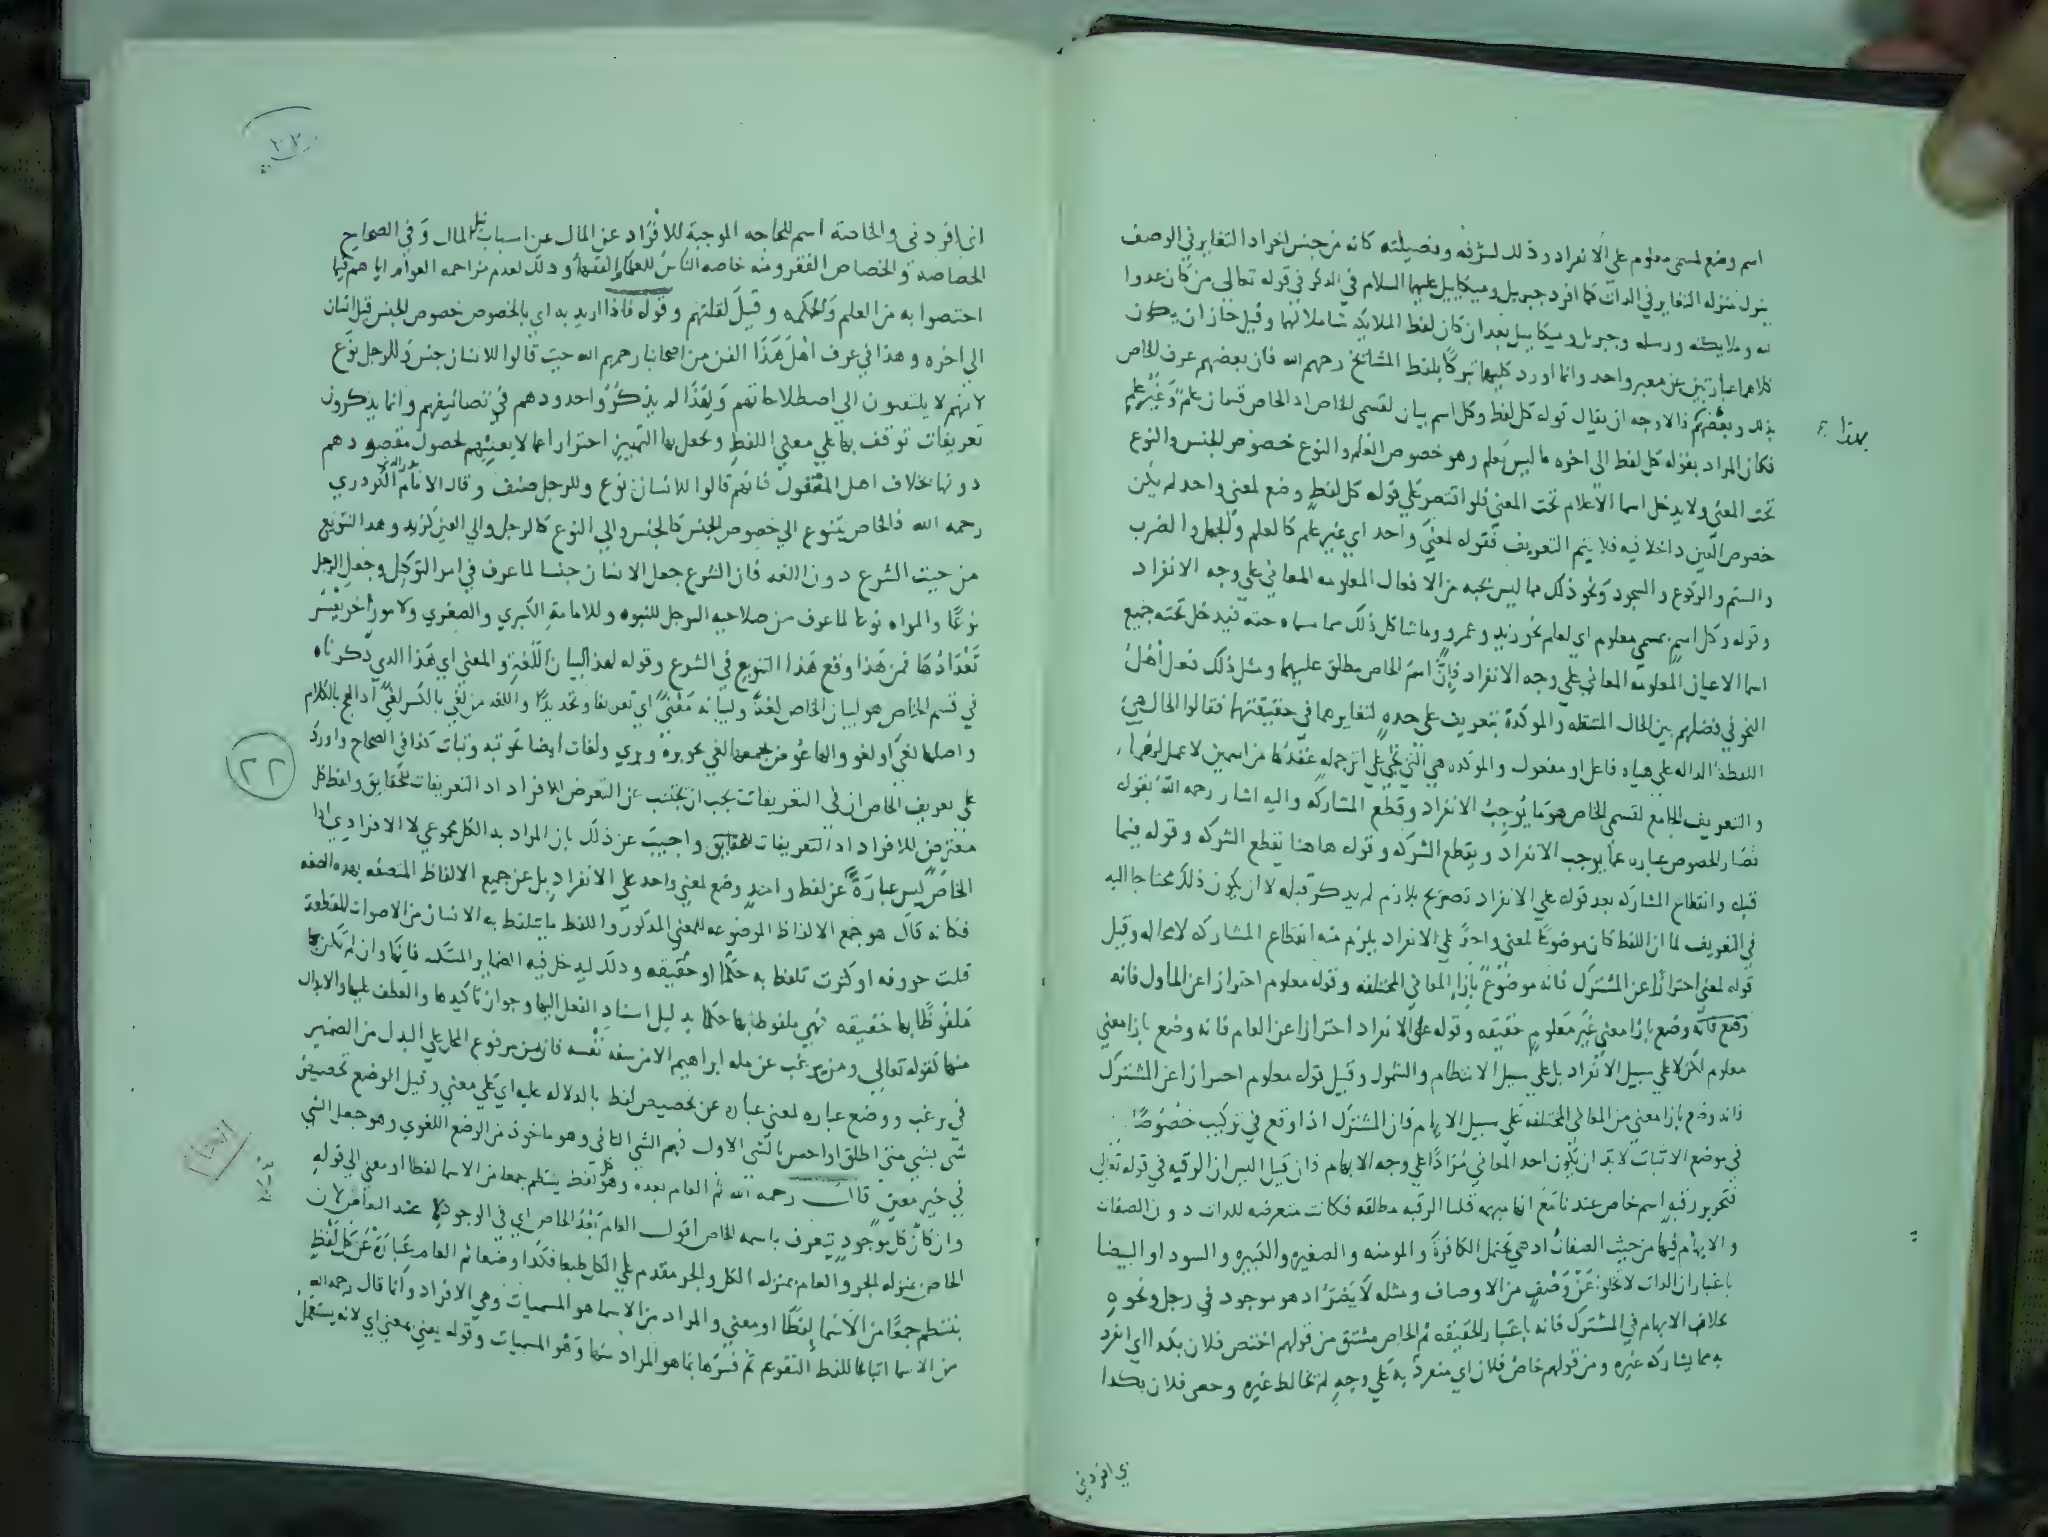 اسم وضع لمسمى معلوم على الانفراد وذلك لشرفه وفضيلته كانه من جنس اخر اذ التغاير في الوصف
ينزل منزله التغاير في الذات كما افرد جبريل وميكاييل عليهما السلام في الذكر في قوله تعالى من كان عدوا
لله وملايكته ورسله وجبريل وميكاييل بعد ان كان لفظ الملايكه شاملا لهما وقيل جاز ان يكون
كلاهما عبارتين عن معبر واحد وانما اورد كليهما تبركا بلفظ المشائخ رحمهم الله فان بعضهم عرف الخاص
بهذا
بذلك وبعضهم ذا الاوجه ان يقال قوله كل لفظ وكل اسم بيان لقسمي الخاص اذ الخاص قسمان علم وغير علم
فكان المراد بقوله كل لفظ الى اخره ما ليس بعلم وهو خصوص العلم والنوع خصوص الجنس والنوع
تحت المعنى ولا يدخل اسما الاعلام تحت المعنى فلو اقتصر على قوله كل لفظ وضع لمعنى واحد لم يكن
خصوص العين داخلا فيه فلا يتم التعريف فقوله لمعنى واحد اي غير علم كالعلم والجهل والضرب
والشتم والركوع والسجود ونحو ذلك مما ليس بجبه من الافعال المعلومه المعاني على وجه الانفراد
وقوله وكل اسم لمسمى معلوم اي لعلم نحو زيد وعمرو وما شاكل ذلك مما سماه حته فيدخل تحته جميع
اسما الاعيان المعلومه المعاني على وجه الانفراد فان اسم الخاص مطلق عليهما ومثل ذلك فعل اهل
النحو في فصلهم بين الحال المنتقله والموكدة بتعريف على حده لتغايرهما في حقيقتهما فقالوا الحال هي
اللفظة الداله على هياة فاعل او مفعول والموكده هي التي تجي على اثر جمله عقدها من اسمين لا عمل لهما
والتعريف الجامع لقسمي الخاص هو ما يوجب الانفراد وقطع المشاركه واليه اشار رحمه الله بقوله
فصار الخصوص عباره عما يوجب الانفراد ويقطع الشركه وقوله هاهنا يقطع الشركه وقوله فيما
قبله وانقطاع المشاركه بعد قوله على الانفراد تصريح بلازم لم يذكر قبله لا ان يكون ذلك محتاجا اليه
في التعريف لما ان اللفظ كان موضوعا لمعنى واحد على الانفراد يلزم منه انقطاع المشاركه لا محاله وقيل
قوله لمعنى احترازا عن المشترك فانه موضوع بازا المعاني المختلفه وقوله معلوم احترازا عن الماول فانه
وضع فانه وضع بازا معنى غير معلوم حقيقه وقوله على الانفراد احترازا عن العام فانه وضع بازا معنى
معلوم لكن لا على سبيل الانفراد بل على سبيل الانتظام والشمول وقيل قوله معلوم احترازا عن المشترك
فانه وضع بازا معنى من المعاني المختلفه على سبيل الابهام فان المشترك اذا وقع في تركيب خصوصا
في موضع الاثبات لابد ان يكون احد المعاني مرادا على وجه الابهام فان قيل اليس ان الرقبه في قوله تعالى
فتحرير رقبه اسم خاص عندنا مع انها مبهمه قلنا الرقبه مطلقه فكانت متعرضه للذات دون الصفات
والابهام فيها من حيث الصفات اذ هي تحتمل الكافرة والمومنه والصغيره والكبيره والسودا والبيضا
باعتبار ان الذات لا تخلو عن وصف من الاوصاف ومثله لا يضر اذ هو موجود في رجل ونحوه
بخلاف الابهام في المشترك فانه باعتبار الحقيقه ثم الخاص مشتق من قولهم اختص فلان بكذا اي انفرد
به مما يشاركه غيره ومن قولهم خاص فلان اي منفرد به على وجه لم يخالط غيره وخص فلان بكذا
ي افردني
٢٢
اي افردني والخاصة اسم للحاجه الموجبة للانفراد عن المال عن اسباب نيل المال وفي الصحاح
الخصاصة والخصاص الفقر ومنه خاصه الناس للعلما والفقها وذلك لعدم مزاحمه العوام اياهم فيما
اختصوا به من العلم والحكمه وقيل لقلتهم وقوله فاذا اريد به اي بالخصوص خصوص الجنس قيل انسان
الى اخره وهذا في عرف اهل هذا الفن من اصحابنا رحمهم الله حيث قالوا للانسان جنس وللرجل نوع
لانهم لا يلتفتون الى اصطلاحاتهم ولهذا لم يذكروا حدودهم في تصانيفهم وانما يذكرون
تعريفات توقف بها على معنى اللفظ وتحصل بها التمييز احترازا عما لا يعنيهم لحصول مقصودهم
دونها بخلاف اهل المعقول فانهم قالوا للانسان نوع وللرجل صنف وقال الامام الكردري
رحمه الله فالخاص يتنوع الى خصوص الجنس كالجنس والى النوع كالرجل والى العين كزيد وهذا التنويع
من حيث الشرع دون اللغه فان الشرع جعل الانسان جنسا لما عرف في امر التوكيل وجعل الرجل
نوعا والمراه نوعا لما عرف من صلاحيه الرجل للنبوه وللامامة الكبرى والصغرى ولامور اخر يعسر
تعدادها فمن هذا وقع هذا التنويع في الشرع وقوله لهذا لبيان اللغة والمعنى اي هذا الذي ذكرناه
في قسم الخاص هو لبيان الخاص لغة ولبيانه معنى اي تعريفا وتحديدا واللغه من لغي بالكسر لغى اذا لهج بالكلام
واصلها لغي او لغو والها عوض وجمعها لغى نحو برة وبرى ولغات ايضا نحو ثبه وثبات كذا في الصحاح واورد
٢٢
على تعريف الخاص ان في التعريفات يجب ان يجتنب عن التعرض للافراد اذ التعريفات للحقايق ولفظ كل
متعرض للافراد اذ التعريفات للحقايق واجيب عن ذلك بان المراد به الكل مجموعي لا الافرادي اذا
الخاص ليس عبارة عن لفظ واحد وضع لمعنى واحد على الانفراد بل عن جميع الالفاظ المتصفه بهذه الصفه
فكانه قال هو جمع الالفاظ الموضوعه للمعنى المذكور واللفظ ما يتلفظ به الانسان من الاصوات المقطعة
قلت حروفه او كثرت تلفظ به حكما او حقيقه وذلك ليدخل فيه الضماير المستكنه فانها وان لم تكن
ملفوظا بها حقيقه فهي ملفوظا بها حكما بدليل اسناد الفعل اليها وجواز تاكيدها والعطف عليها والابدال
منها كقوله تعالى ومن يرغب عن مله ابراهيم الا من سفه نفسه فان من مرفوع المحل على البدل من الضمير
في يرغب ووضع عباره لمعنى عباره عن تخصيص لفظ بالدلاله عليه اي على معنى وقيل الوضع تخصيص
شي بشي متى اطلق او احس بالشي الاول فهم الشي الثاني وهو ماخوذ من الوضع اللغوي وهو جعل الشي
في حيز معين قال رحمه الله ثم العام بعده وهو كل لفظ ينتظم جمعا من الاسما لفظا او معنى الى قوله
وان كان كل موجود يتعرف باسمه الخاص اقول العام بعد الخاص اي في الوجود عند العامر لان
الخاص بمنزله الجزو والعام بمنزله الكل والجزو مقدم على الكل طبعا فكذا وضعا ثم العام عبارة عن كل لفظ
ينتظم جمعا من الاسما لفظا او معنى والمراد من الاسما هو المسميات وهي الافراد وانما قال رحمه الله
من الاسما اتباعا للفظ التقويم ثم فسرها بما هو المراد منها وهو المسميات وقوله يعني بمعنى اي لانه يستعمل